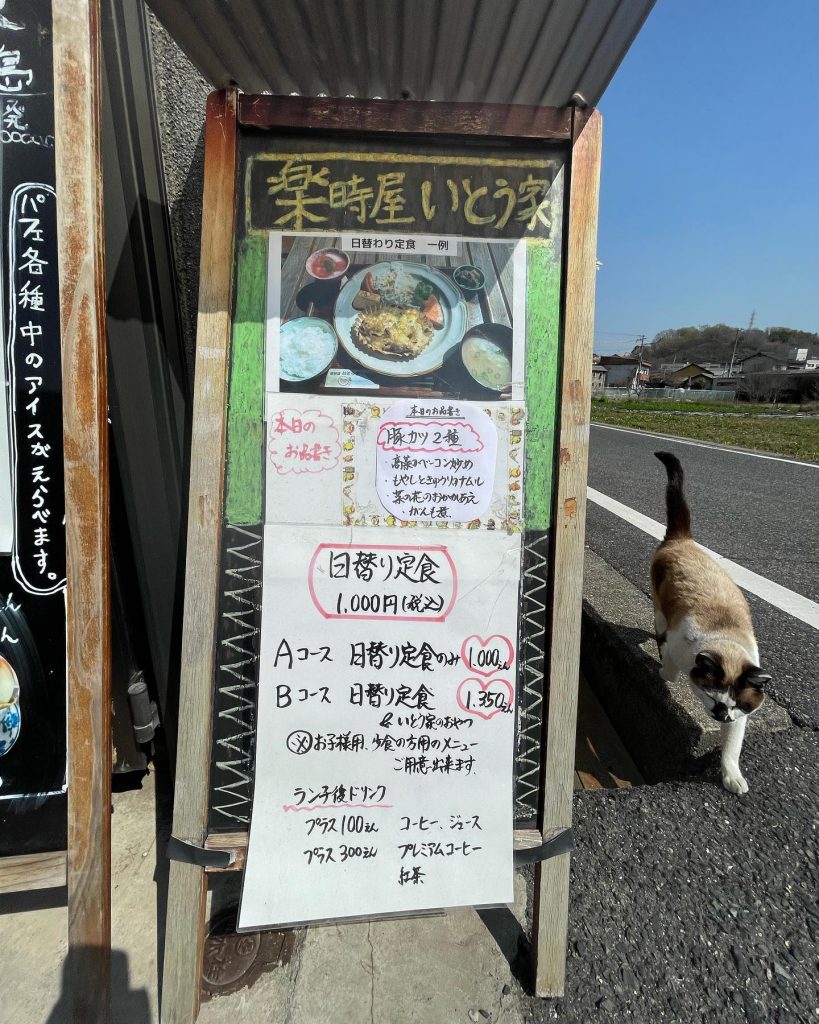 島
発
パフェ各種中のアイスがえらべます。
楽時屋いとう家
日替わり定食 一例
本日の
お品書き
本日のお品書き
豚カツ2種
・高菜のベーコン炒め
・もやしときゅうりのナムル
菜の花のおかかあえ
・がんも煮
日替り定食
1,000円(税込)
Aコース 日替り定食のみ 1.000えん
Bコース 日替り定食 1.350えん
& いとう家のおやつ
※お子様用、少食の方用のメニュー
ご用意出来ます。
ランチ後ドリンク
プラス100えん コーヒー、ジュース
プラス300えん プレミアムコーヒー
紅茶